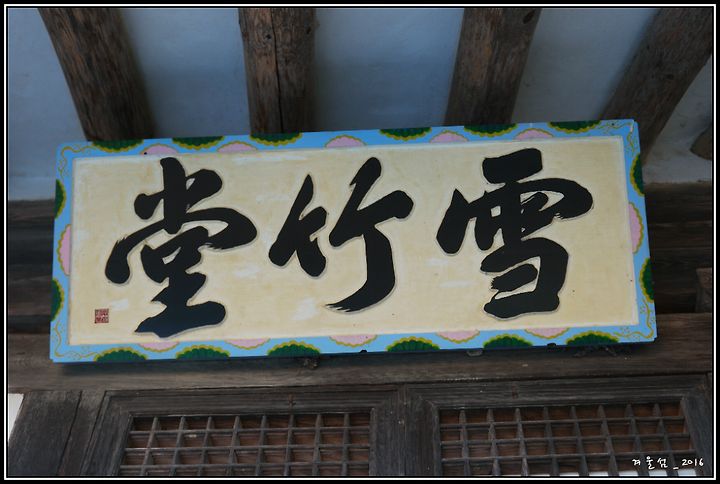 雪竹堂
겨울섬_2016